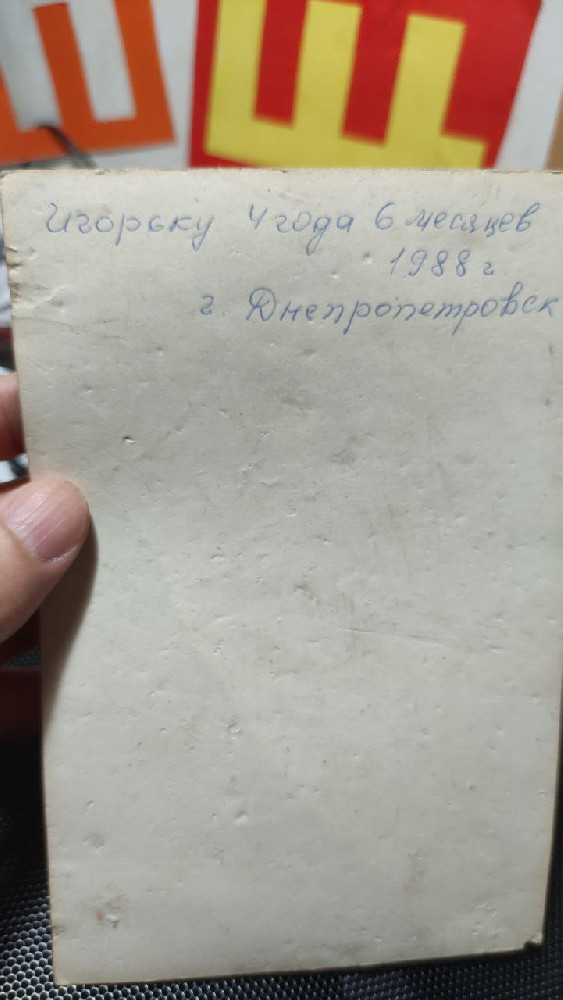 Игорьку 4 года 6 месяцев
1988 г.
г. Днепропетровск